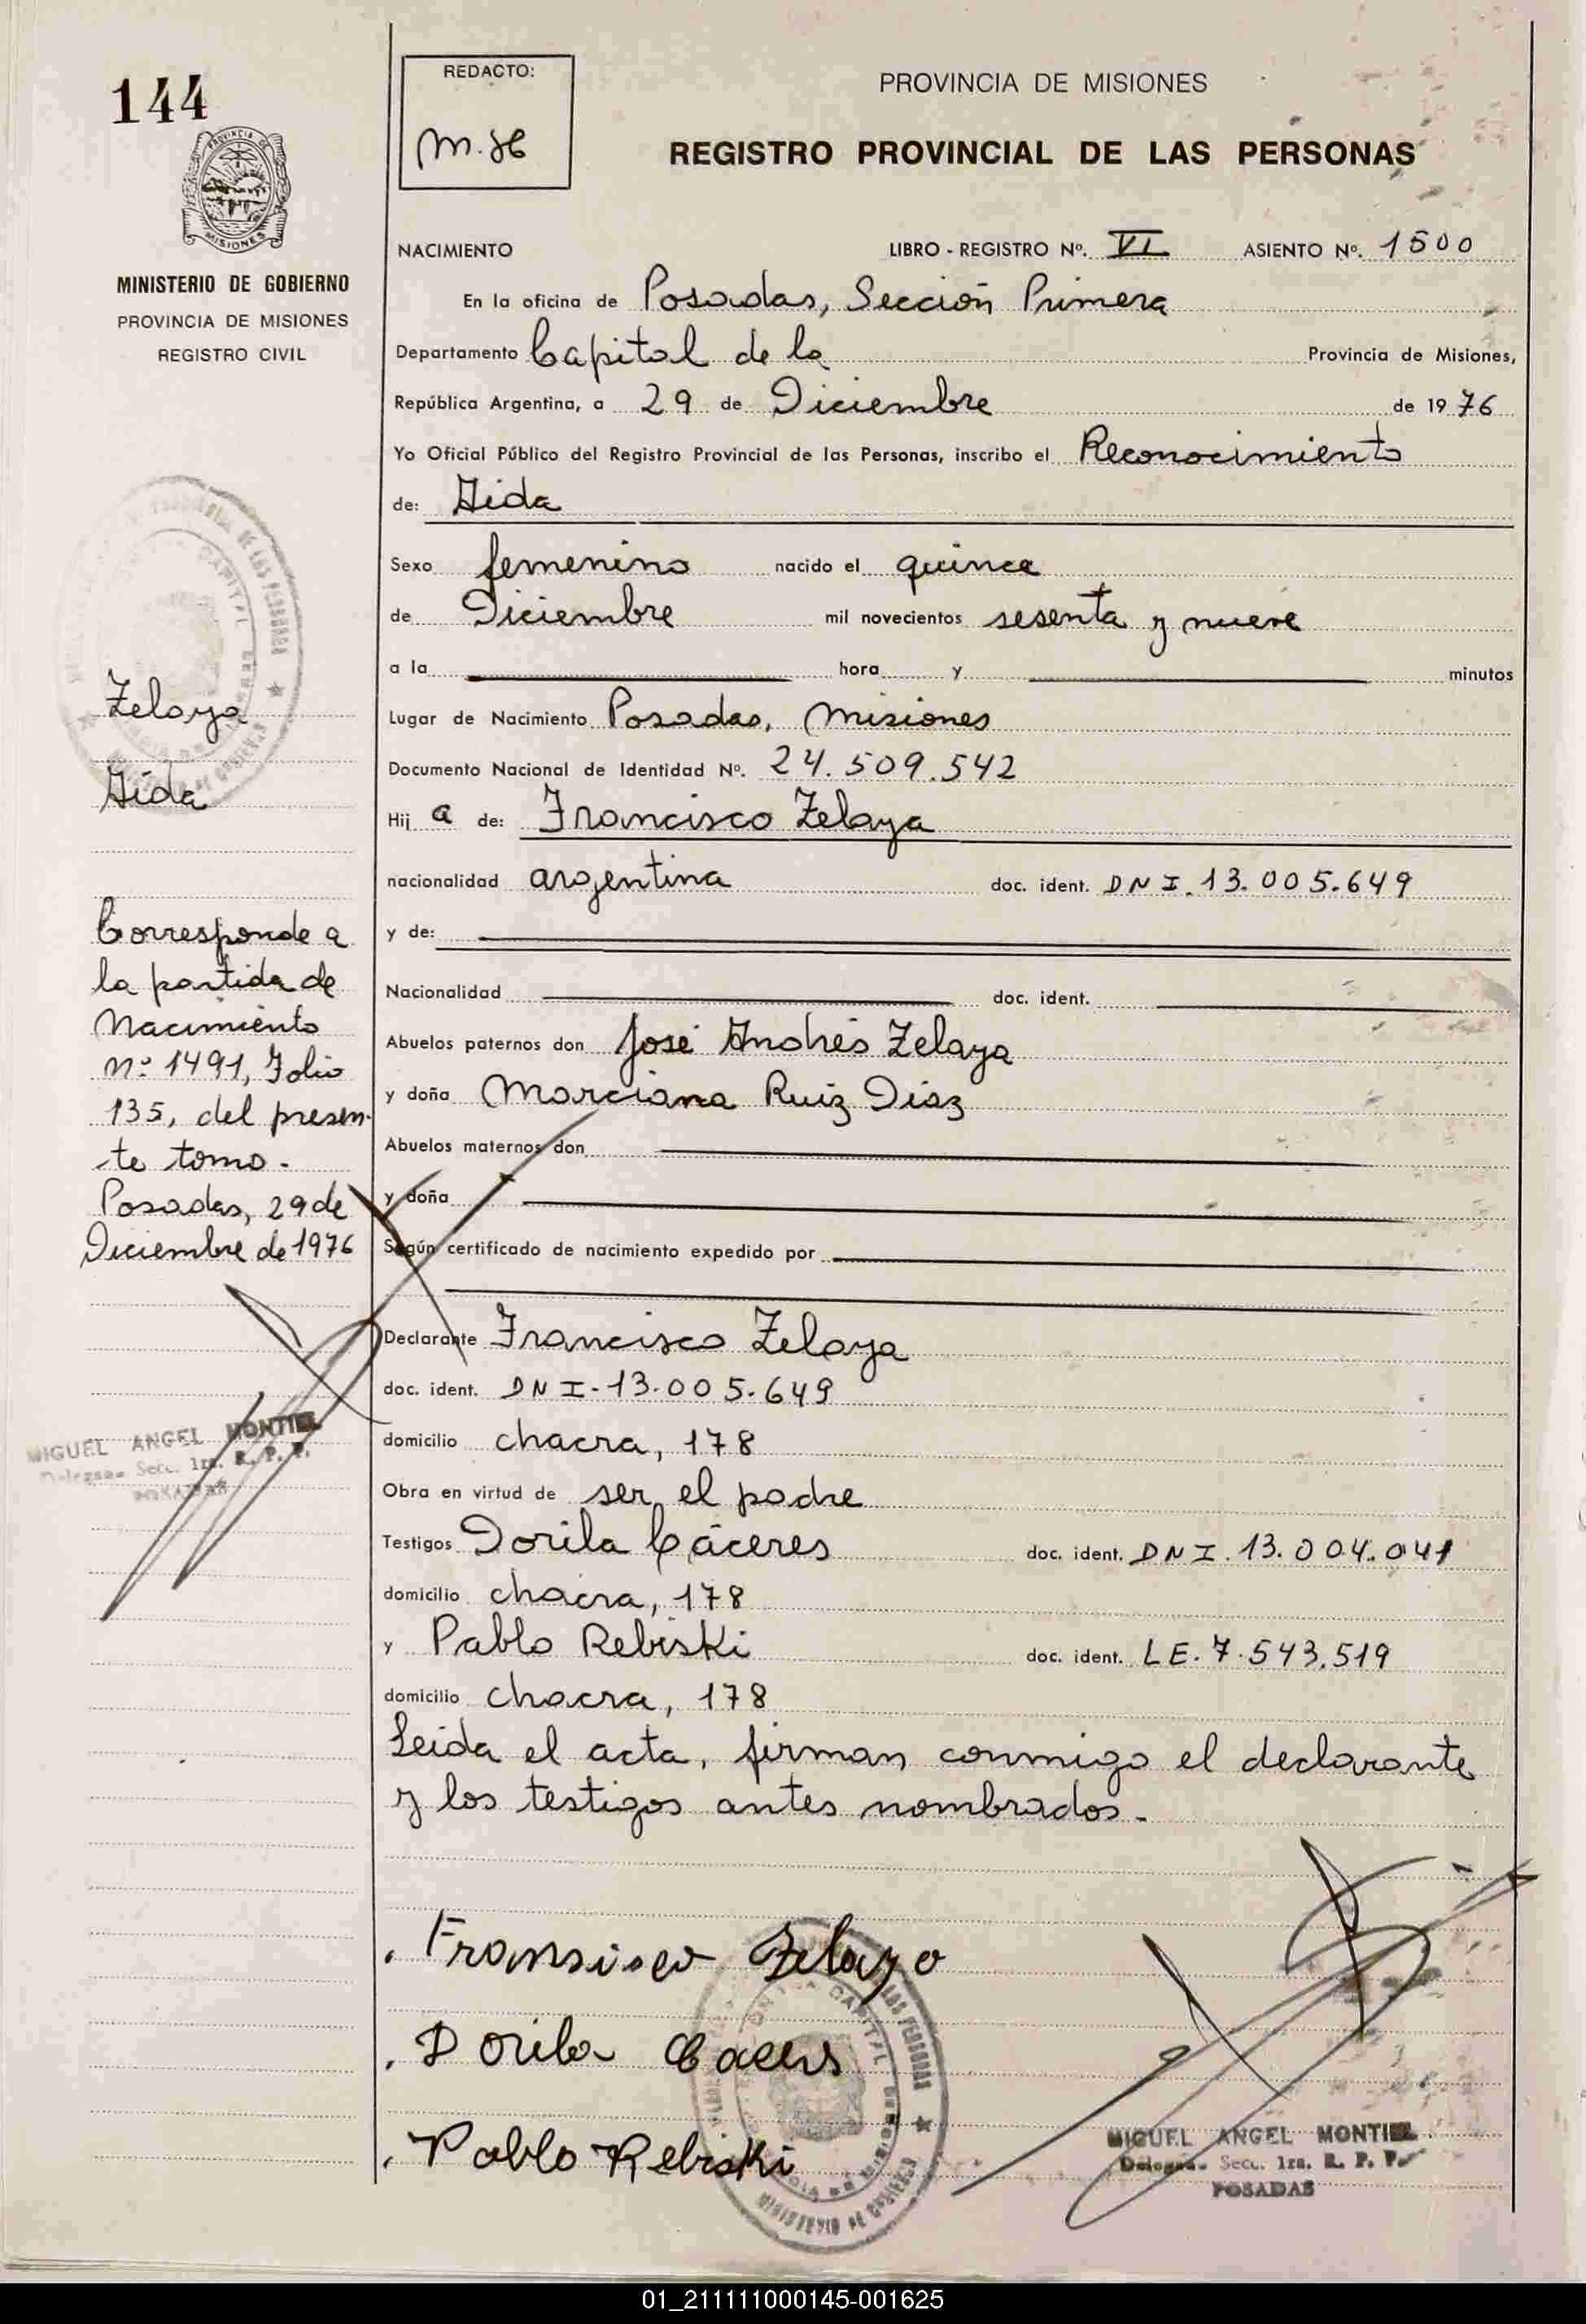 144
REDACTO:
M.H
PROVINCIA DE MISIONES
REGISTRO PROVINCIAL DE LAS PERSONAS
MISIONES
MINISTERIO DE GOBIERNO
PROVINCIA DE MISIONES
REGISTRO CIVIL
NACIMIENTO LIBRO - REGISTRO Nº. VI ASIENTO Nº. 1500
En la oficina de Posadas, Sección Primera
Departamento Capital de la Provincia de Misiones,
República Argentina, a 29 de Diciembre de 1976
Yo Oficial Público del Registro Provincial de las Personas, inscribo el Reconocimiento
de: Aida
Sexo femenino nacido el quince
de Diciembre mil novecientos sesenta y nueve
a la hora y minutos
Lugar de Nacimiento Posadas, Misiones
Documento Nacional de Identidad Nº. 24.509.542
Hij a de: Francisco Zelaya
nacionalidad argentina doc. ident. DNI. 13.005.649
y de:
Nacionalidad doc. ident.
Abuelos paternos don José Andrés Zelaya
y doña Marciana Ruiz Diaz
Abuelos maternos don
y doña
Según certificado de nacimiento expedido por
Declarante Francisco Zelaya
doc. ident. DNI-13.005.649
domicilio chacra, 178
Obra en virtud de ser el padre
Testigos Dorila Cáceres doc. ident. DNI. 13.004.041
domicilio chacra, 178
y Pablo Rebiski doc. ident. LE. 7.543.519
domicilio chacra, 178
Leida el acta, firman conmigo el declarante
y los testigos antes nombrados.-
Zelaya
Aida
Corresponde a
la partida de
Nacimiento
nº 1491, Folio
135, del presen-
te tomo.-
Posadas, 29 de
Diciembre de 1976
MIGUEL ANGEL MONTIEL
Secc. 1ra. R. P. P.
POSADAS
Fransisco Zelaya
Dorila Caceres
Pablo Rebiski
LAS PERSONAS
CAPITAL
MINISTERIO DE GOBIERNO
MIGUEL ANGEL MONTIEL
Delegado Secc. 1ra. R. P. P.
POSADAS
01_211111000145-001625